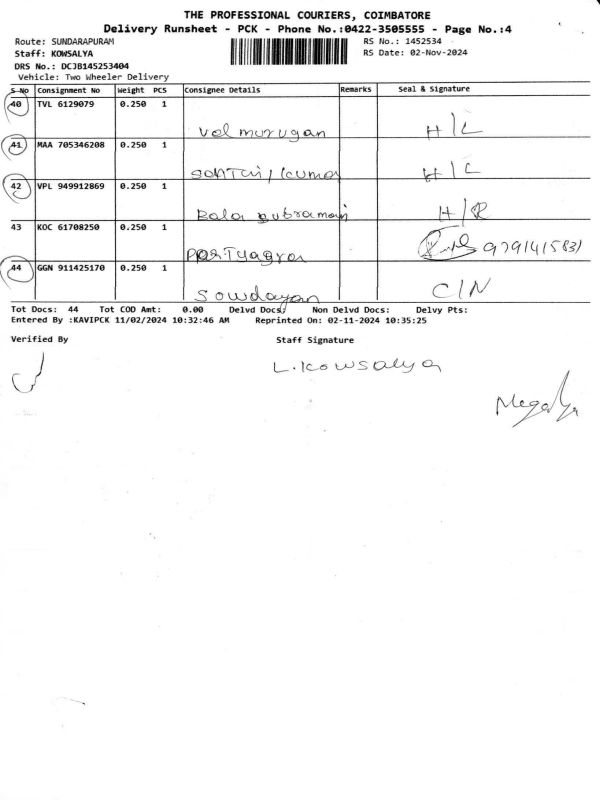 THE PROFESSIONAL COURIERS, COIMBATORE
Delivery Runsheet - PCK - Phone No.:0422-3505555 - Page No.:4
Route: SUNDARAPURAM RS No.: 1452534
Staff: KOWSALYA RS Date: 02-Nov-2024
DRS No.: DCJB145253404
Vehicle: Two Wheeler Delivery
S No Consignment No Weight PCS Consignee Details Remarks Seal & Signature
40 TVL 6129079 0.250 1
Vel murugan H/L
41 MAA 705346208 0.250 1
Kumar H/L
42 VPL 949912869 0.250 1
Bala subramani H/R
43 KOC 61708250 0.250 1
44 GGN 911425170 0.250 1
Sowdayan C/N
Tot Docs: 44 Tot COD Amt: 0.00 Delvd Docs: Non Delvd Docs: Delvy Pts:
Entered By :KAVIPCK 11/02/2024 10:32:46 AM Reprinted On: 02-11-2024 10:35:25
Verified By Staff Signature
L.Kowsalya